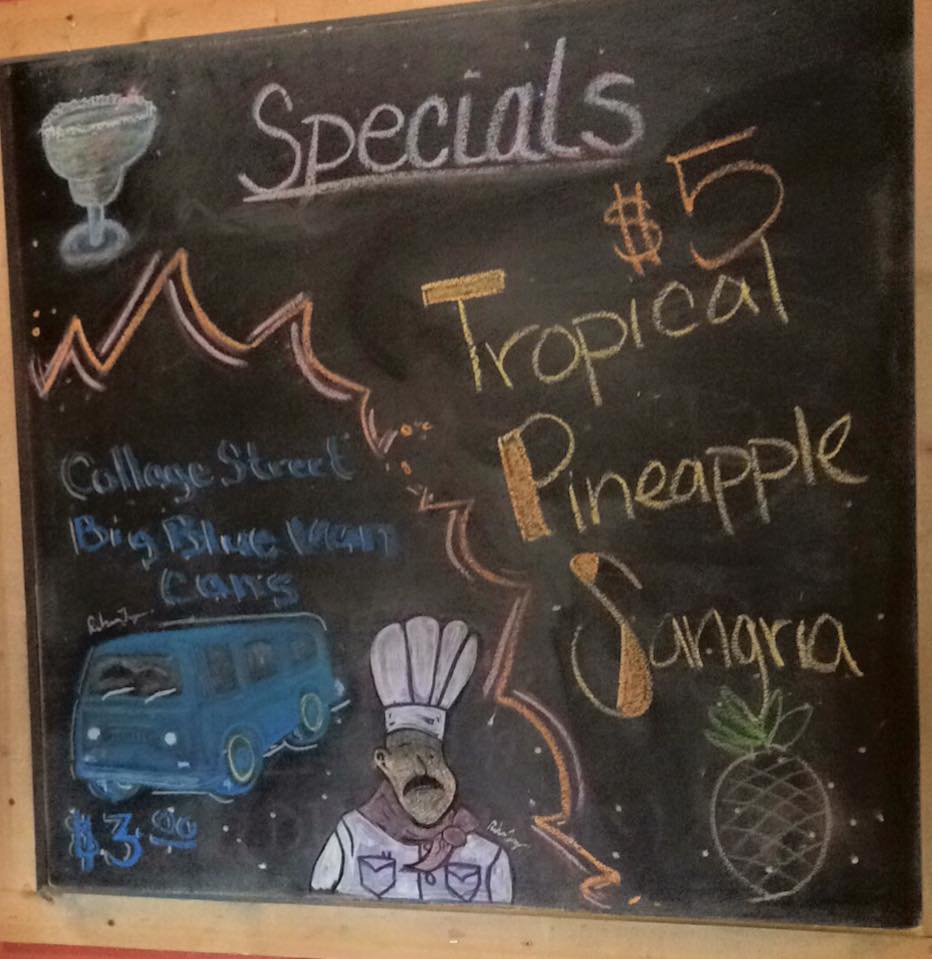 Specials
$5
Tropical
Pineapple
Sangria
College Street
Big Blue Van
Cans
$3.00